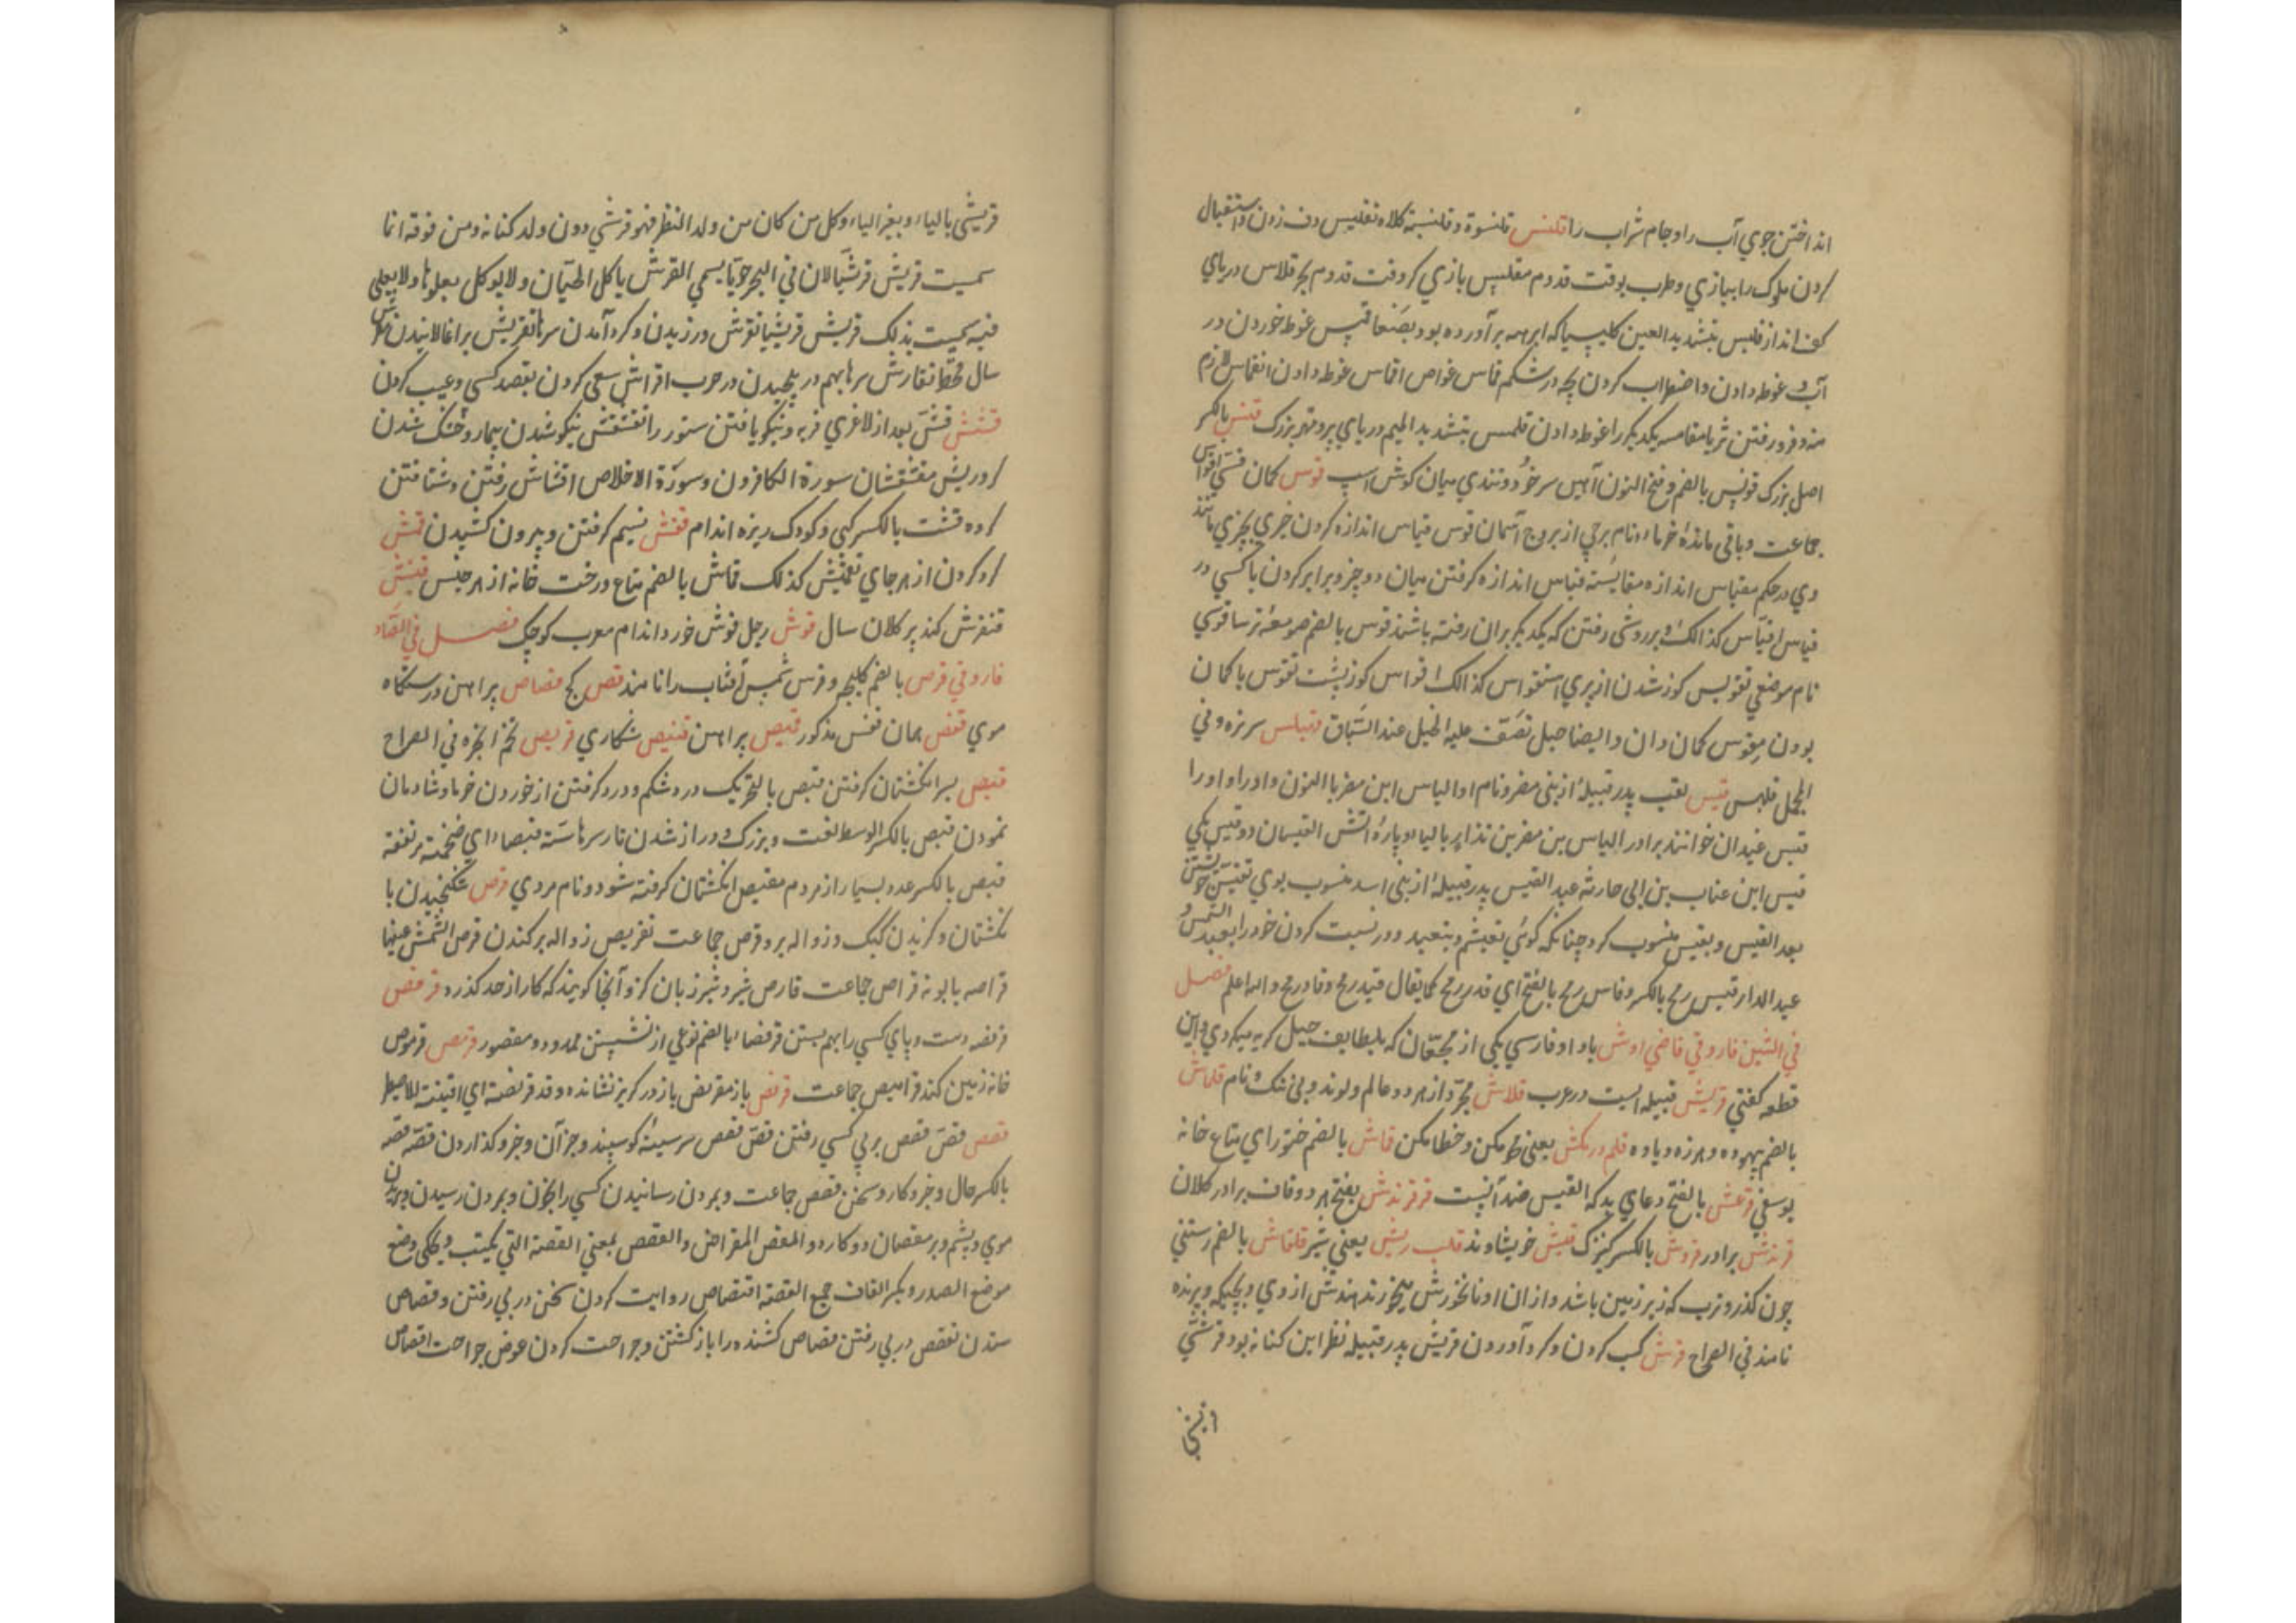 انداختن جوي آب را وجام شراب را قلنس قلنسوة وقلنسية كلاه تقليس دف زدن واستقبال
كردن ملوك را ببازي وطرب بوقت قدوم مقلس بازي كر وقت قدوم بحر قلاس درياي
كف انداز قليس بتشديد العين كليسيا كه ابرهه برآورده بود بصنعا قمس غوطه خوردن در
آب وغوطه دادن واضطراب كردن بچه در شكم قماس غواص اقماس غوطه دادن انقماس لازم
منه وفرو رفتن ثريا مقامسه يكديكر را غوطه دادن قلمس بتشديد الميم درياي پر ومهتر بزرك قنس بالكسر
اصل بزرك قونس بالضم وفتح النون آهن سر خود وتندي ميان كوش اسپ قوس كمان قسي اقواس
جماعت وباقي مانده خرما ونام برجي از بروج آسمان قوس قياس اندازه كردن چيزي بچيزي مانند
وي در حكم مقياس اندازه مقايسته قياس اندازه كرفتن ميان دو چيز وبرابر كردن با كسي در
قياس اقتياس كذالك وبرروشي رفتن كه يكديكر بران رفته باشند قوس بالضم صومعه ترسا قوسي
نام موضعي تقويس كوز شدن از پيري استقواس كذالك اقواس كوز پشت تقوس با كمان
بودن مقوس كمان دان وايضا حبل تصف عليه الخيل عند السباق قنبلس سر نزه وفي
المجمل قلبس قيس لقب پدر قبيلۀ از بني مضر ونام او الياس ابن مضر باالنون وادرا واورا
قيس عيدان خوانند برادر الياس بن مضر بن نذار بالياء وپارۀ اتش القيسان دو قيس يكي
قيس ابن عناب بن ابي حارثه عبد القيس پدر قبيلۀ از بني اسد منسوب بوي تقيس خويشتن
بعبد القيس وبقيس منسوب كرد چنانكه كوئي تعبشم وتعبد در نسبت كردن خود را بعبد الشمس و
عبد الدار قيس رمح بالكسر وقاس رمح بالفتح اي قدر رمح كما يقال قيد رمح وقاد رمح والله اعلم فصل
في الشين فاروقي قاضي اوش با واو فارسي يكي از محتقان كه بلطايف حيل كريه ميكردي واين
قطعه كفتي قريش قبيله ايست در عرب قلاش مجرد از هر دو عالم ولوند وبي ننك ونام قلاش
بالضم بيهوده وهرزه وياوه قلم در مكش يعني محو مكن وخطا مكن قماش بالضم خنور اي متاع خانه
يوسفي قرعش بالفتح دعاي بد كه القيس ضد آنست قرقرندش بفتح هر دو قاف برادر كلان
قرندش برادر قروش بالكسر كنيزك قيش خويشاوند قلب ريش يعني شير قلقاش بالضم رستني
چون كذر وترب كه زير زمين باشد وازان اونا نخورش مي‌خورند هندش اروي وبچيكه وپرنده
نامند في الصراح قرش كسب كردن وكرد آوردن قريش پدر قبيله نظر ابن كنانه بود قرشي
قريشي بالياء وبغير الياء وكل من كان من ولد النظر فهو قرشي دون ولد كنانه ومن فوقه انما
سميت قريش قرشيا لان في البحر حوتا يسمي القرش ياكل الحيتان ولا يوكل يعلوها ولا يعلي
فسميت بذلك قريش قريشيا تقرش ورزيدن وكرد آمدن سرها تقريش بر آغالانيدن
سال قحط تقارش سرها بهم در پيچيدن در حرب اقراش سعي كردن بقصد كسي وعيب كردن
قشش قش بعد از لاغري فربه ونيكو يافتن ستور را تقشقش نيكو شدن بيمار وخشك شدن
كر وريش مقشقشان سورة الكافرون وسورة الاخلاص اقشاش رفتن وشتافتن
كروه قشت بالكسر كبي وكودك ريزه اندام قفش نسيم كرفتن وبيرون كشيدن قمش
كرد كردن از هر جاي تقميش كذلك قماش بالضم متاع ورخت خانه از هر جنس قنفش
قنفرش كنده پير كلان سال قوش رجل قوش خورد اندام معرب كوچك فصل في الصاد
فاروقي قرص بالضم كليچه وقرس شمس آفتاب را نامند قص كچ قصاص پراهن ورستنگاه
موي قفص همان قفس مذكور قميص پراهن قنيص شكاري قريص تخم انجره في الصراح
قبص بسر انكشتان كرفتن قبص بالتحريك درد شكم ودرد كرفتن از خوردن خرما وشادمان
نمودن قبص بالكسر الوسط لغت وبزرك ودراز شدن تارسرها سته قبصاء اي ضخمة مرتفعة
قبص بالكسر عدد بسيار از مردم مقبص انكشتان كرفته شود ونام مردي قرص شكنجيدن با
نكشتان وكزيدن كيك وزواله برو قرص جماعت تقريص زواله بركندن قرص الشمش عينها
قراصه بابونه قراص جماعت قارص شير وشير زبان كز وآنجا كويند كه كار از حد كذرد قرفص
قرفصه دست وپاي كسي را بهم بستن قرفصاء بالضم نوعي از نشستن ممدود ومقصور قرمص قرموص
خانه زمين كند قراميص جماعت قرنص باز مقرنص باز در كريز نشانده وقد قرنصته اي اقتنيته للاصطياد
قصص قص قصص بر پي كسي رفتن قص قصص سر سينۀ كوسپند وجز آن وخبر كذاردن قصه قصه
بالكسر حال وخبر وكار وسخن قصص جماعت وبمردن رسانيدن كسي را بخون وبمردن رسيدن وبريدن
موي وپشم وبر مقصان دو كارد والمقص المقراض والقصص بمعني القصة التي يكتب ويحكي وضع
موضع المصدر وبكسر القاف جمع القصة اقتصاص روايت كردن سخن در پي رفتن وقصاص
ستدن تقصص در پي رفتن قصاص كشنده را باز كشتن وجراحت كردن عوض جراحت اقصاص